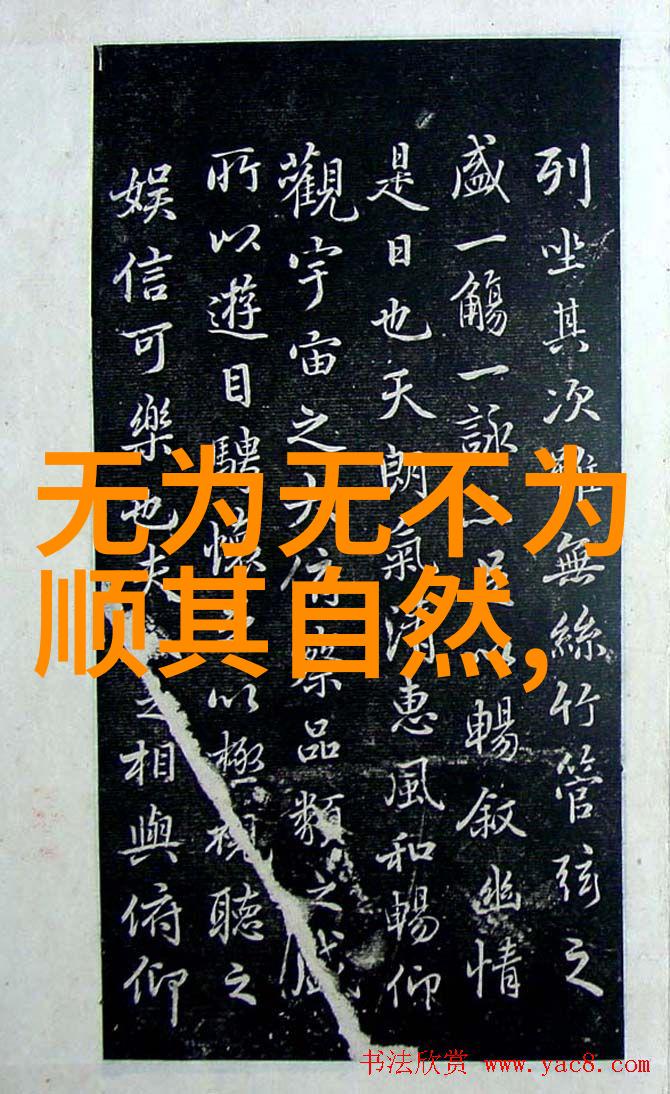 列坐其次雖無絲竹管弦之
盛一觴一詠足以暢叙幽情
是日也天朗氣清惠風和暢仰
觀宇宙之大俯察品類之盛
所以遊目騁懷以極視聽之
娛信可樂也夫之相與俯仰
无为无不为
顺其自然,
书法欣赏 www.yac8.com